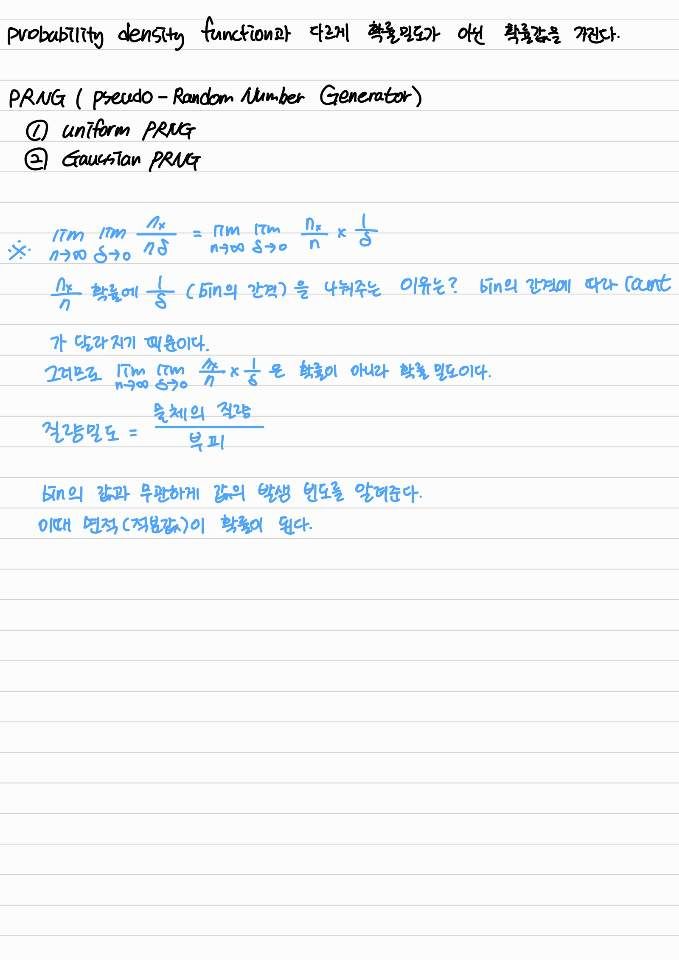 probability density function과 다르게 확률밀도가 아닌 확률값을 가진다.
PRNG ( pseudo-Random Number Generator)
① uniform PRNG
② Gaussian PRNG
※ lim n→∞ lim δ→0 nx / nδ = lim n→∞ lim δ→0 nx / n × 1 / δ
nx / n 확률에 1 / δ (bin의 간격) 을 나눠주는 이유는? bin의 간격에 따라 count
가 달라지기 때문이다.
그러므로 lim n→∞ lim δ→0 nx / n × 1 / δ 은 확률이 아니라 확률 밀도이다.
질량밀도 = 물체의 질량 / 부피
bin의 값과 무관하게 값의 발생 빈도를 알려준다.
이때 면적(적분값)이 확률이 된다.